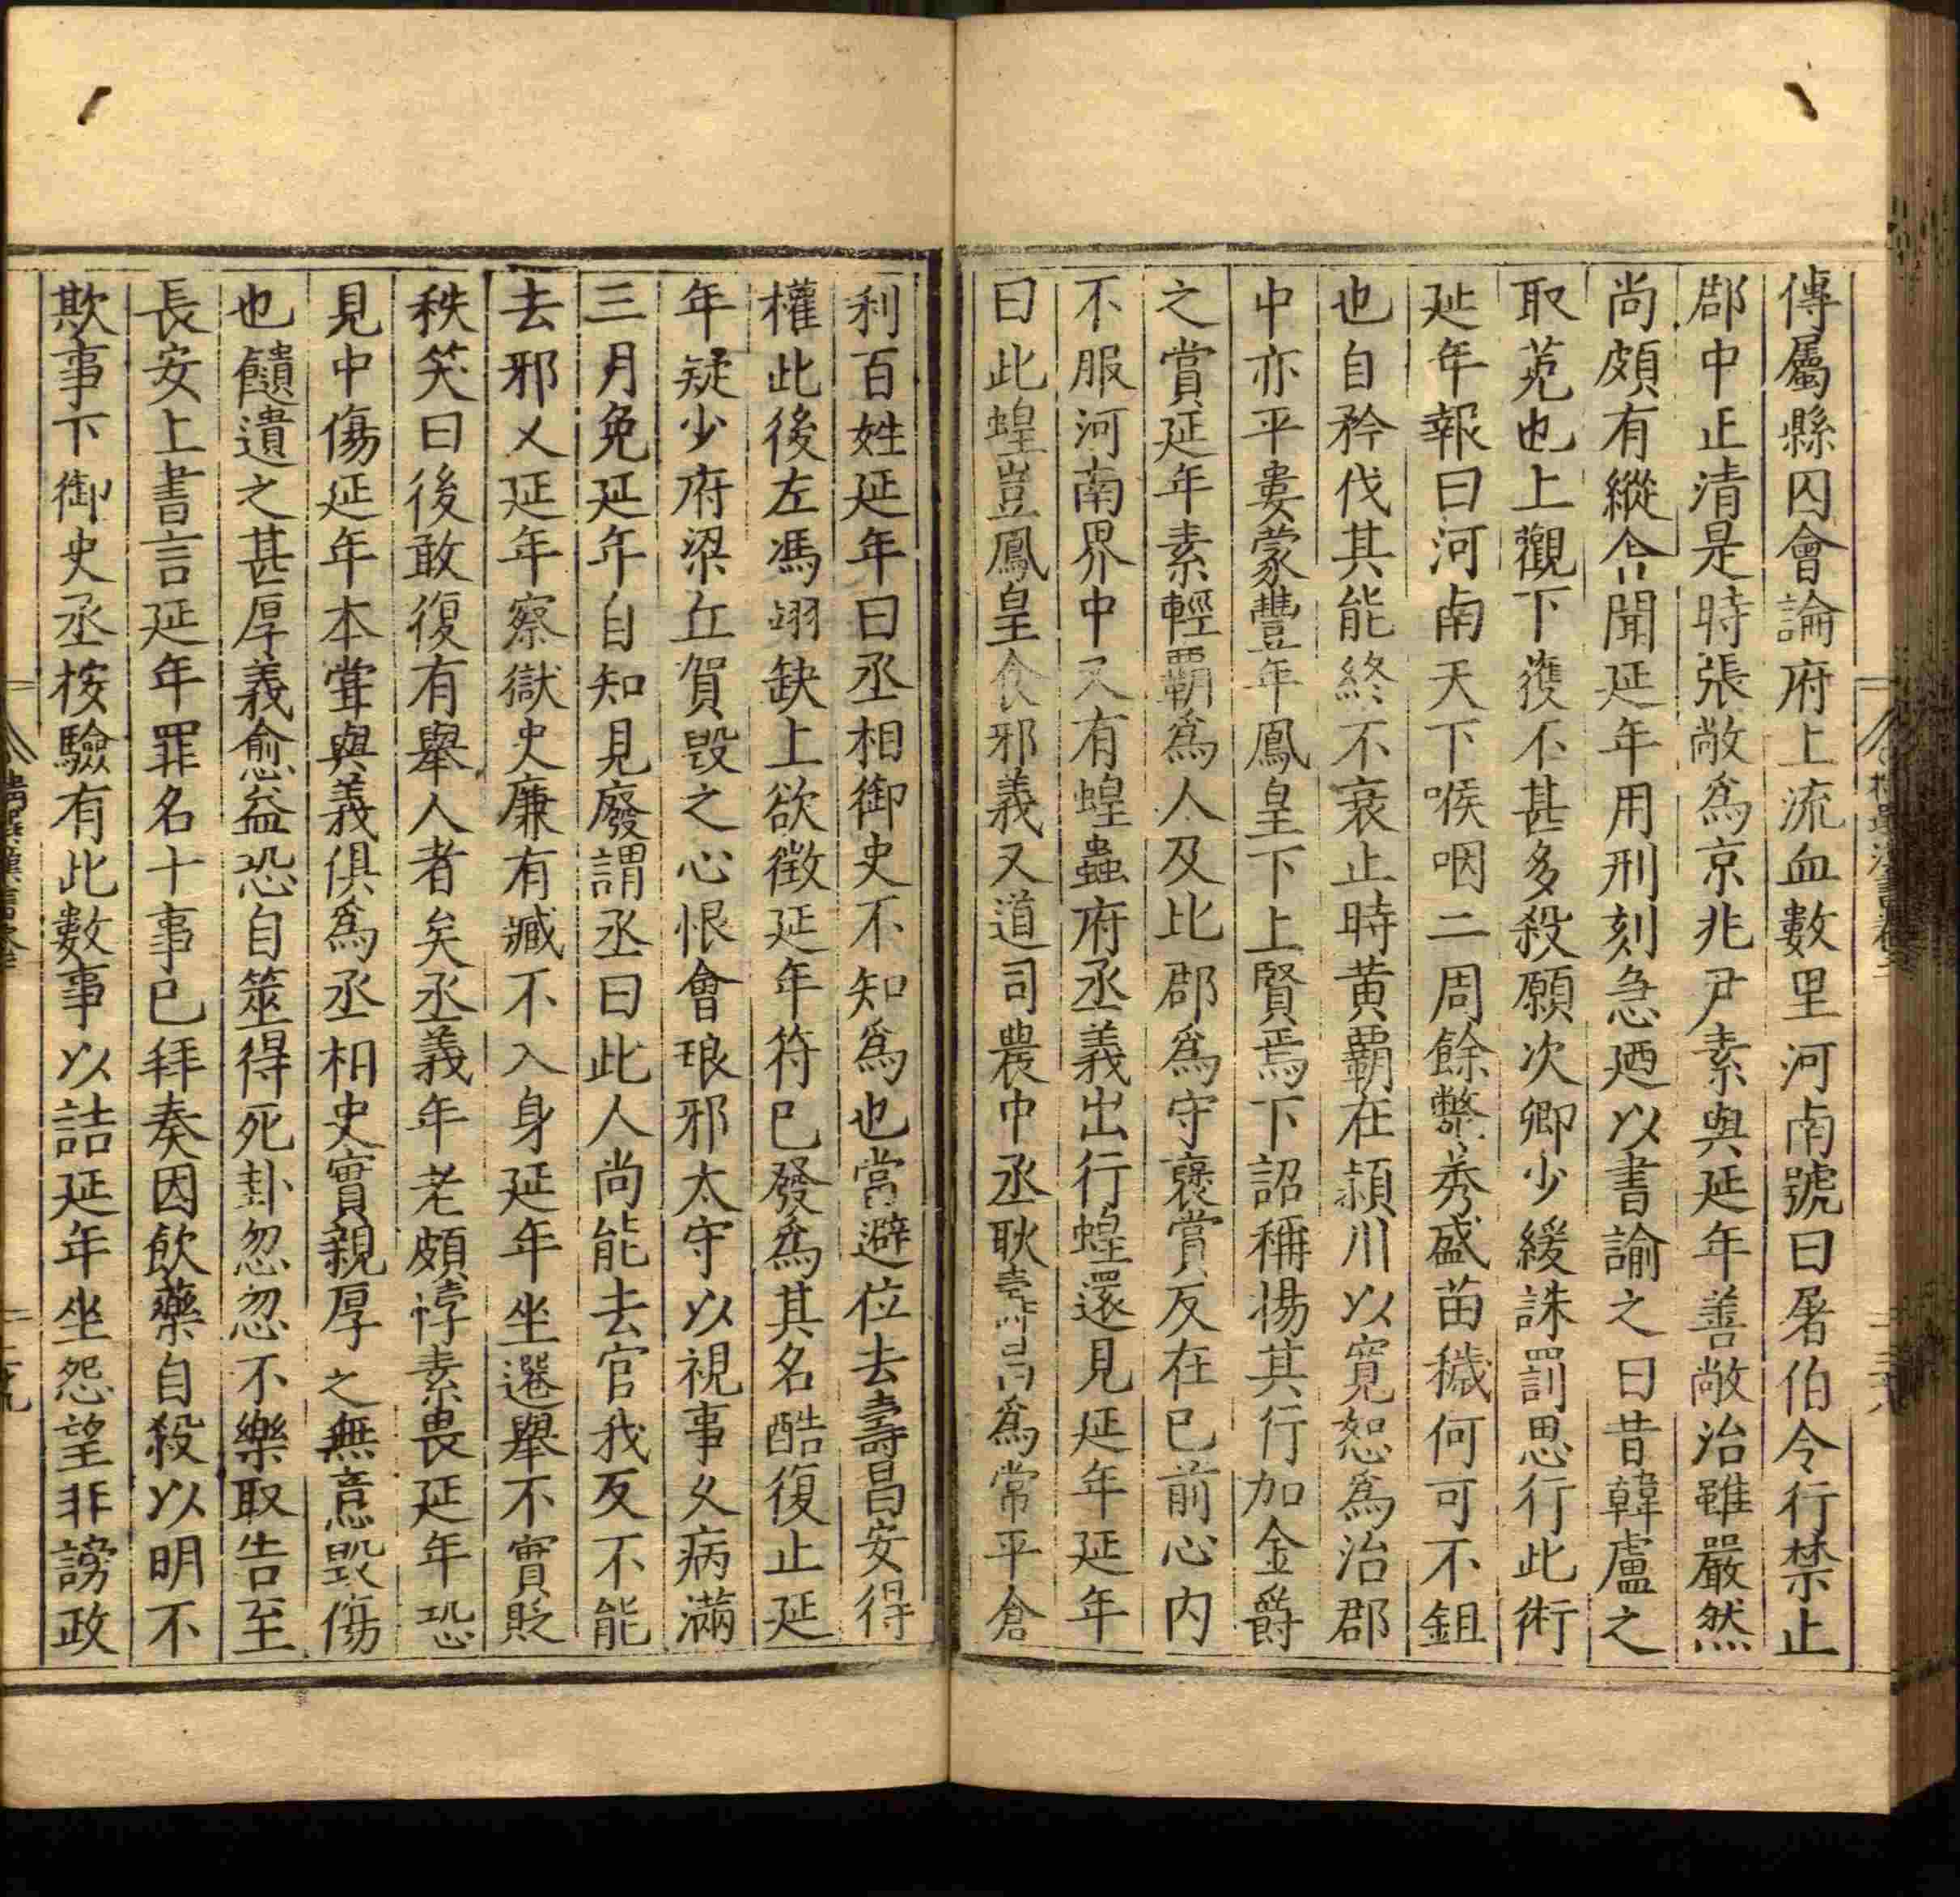 傳屬縣囚會論府上流血數里河南號曰屠伯令行禁止
郡中正清是時張敞爲京兆尹素與延年善敞治雖嚴然
尚頗有縱舍聞延年用刑刻急廼以書諭之曰昔韓盧之
取菟也上觀下獲不甚多殺願次卿少緩誅罰思行此術
延年報曰河南天下喉咽二周餘弊莠盛苗穢何可不鉏
也自矜伐其能終不衰止時黃霸在潁川以寬恕爲治郡
中亦平婁蒙豐年鳳皇下上賢焉下詔稱揚其行加金爵
之賞延年素輕霸爲人及比郡爲守襃賞反在已前心內
不服河南界中又有蝗蟲府丞義出行蝗還見延年延年
曰此蝗豈鳳皇食邪義又道司農中丞耿壽昌爲常平倉
利百姓延年曰丞相御史不知爲也當避位去壽昌安得
權此後左馮翊缺上欲徵延年符已發爲其名酷復止延
年疑少府梁丘賀毀之心恨會琅邪太守以視事久病滿
三月免延年自知見廢謂丞曰此人尚能去官我反不能
去邪乂延年察獄史廉有臧不入身延年坐選舉不實貶
秩笑曰後敢復有舉人者矣丞義年老頗悖素畏延年恐
見中傷延年本嘗與義俱爲丞相史實親厚之無意毀傷
也饋遺之甚厚義愈益恐自筮得死卦忽忽不樂取告至
長安上書言延年罪名十事已拜奏因飲藥自殺以明不
欺事下御史丞按驗有此數事以詰延年坐怨望非謗政